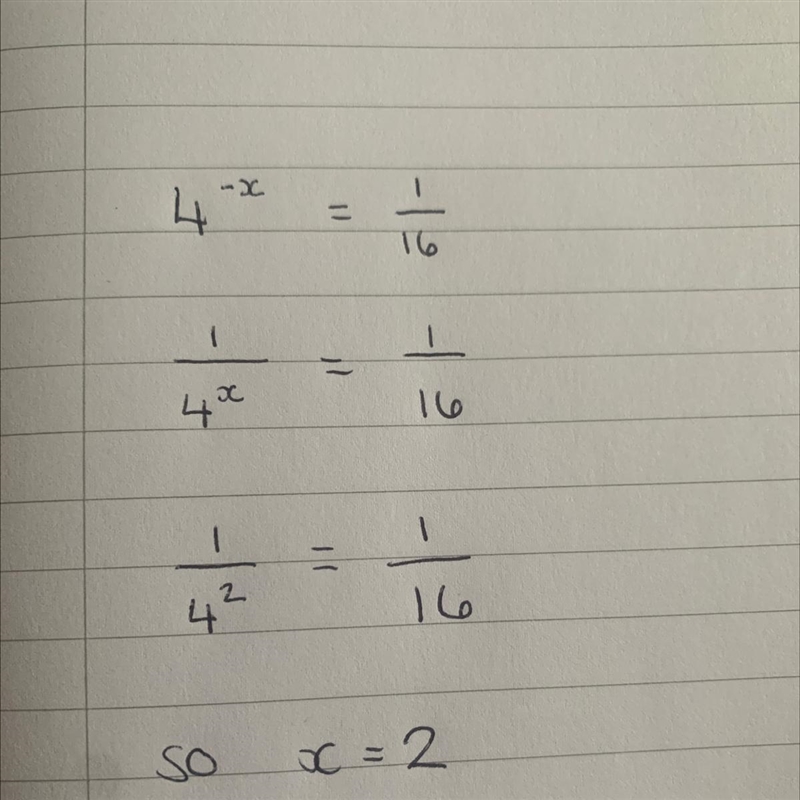 4^{-x} = \frac{1}{16}
\frac{1}{4^{x}} = \frac{1}{16}
\frac{1}{4^{2}} = \frac{1}{16}
so x = 2